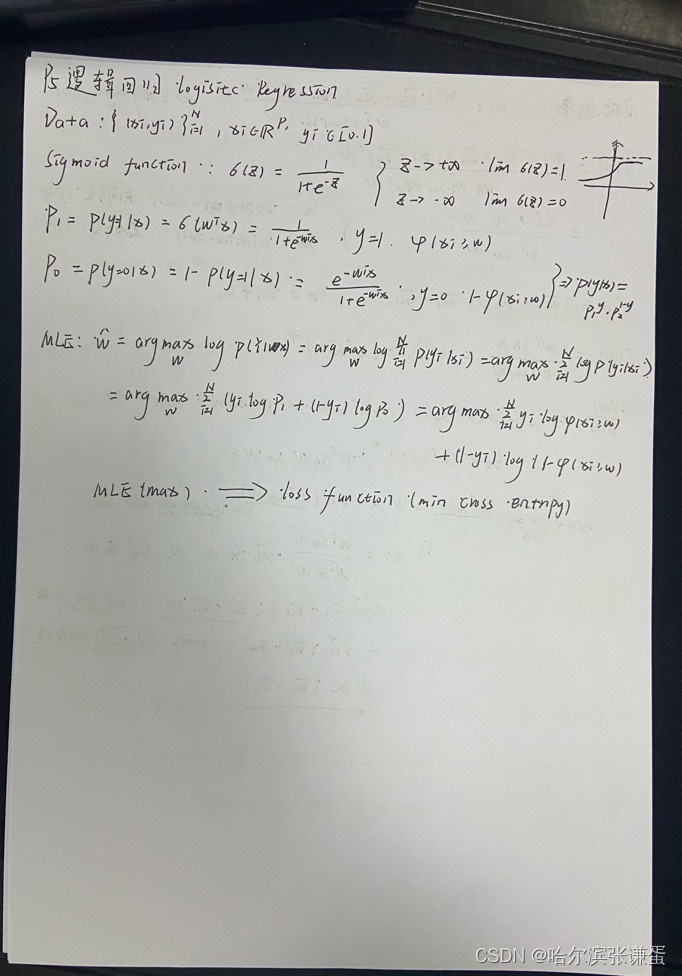 P5 逻辑回归 logisitc Regression
Data : { (xi,yi) }_{i=1}^{N} , xi∈ℝ^P, yi∈[0.1]
Sigmoid function : σ(z) = \frac{1}{1+e^{-z}} { z→+∞ lim σ(z)=1
z→-∞ lim σ(z)=0
P₁ = p(y=1|x) = σ(wᵀx) = \frac{1}{1+e^{-wᵀx}} , y=1. φ(xi;w)
P₀ = p(y=0|x) = 1- p(y=1|x) = \frac{e^{-wᵀx}}{1+e^{-wᵀx}} , y=0 1-φ(xi;w) } ⇒ p(y|x) =
p₁^y · p₂^{1-y}
MLE: ŵ = arg max_w log p(Y|x) = arg max_w log ∏_{i=1}^{N} p(yi|xi) = arg max_w ∑_{i=1}^{N} log p(yi|xi)
= arg max_w ∑_{i=1}^{N} (yi log P₁ + (1-yi) log P₀) = arg max ∑_{i=1}^{N} yi log φ(xi;w)
+ (1-yi) log (1-φ(xi;w)
MLE (max) ⟹ loss function (min cross entrpy)
CSDN @哈尔滨张谦蛋